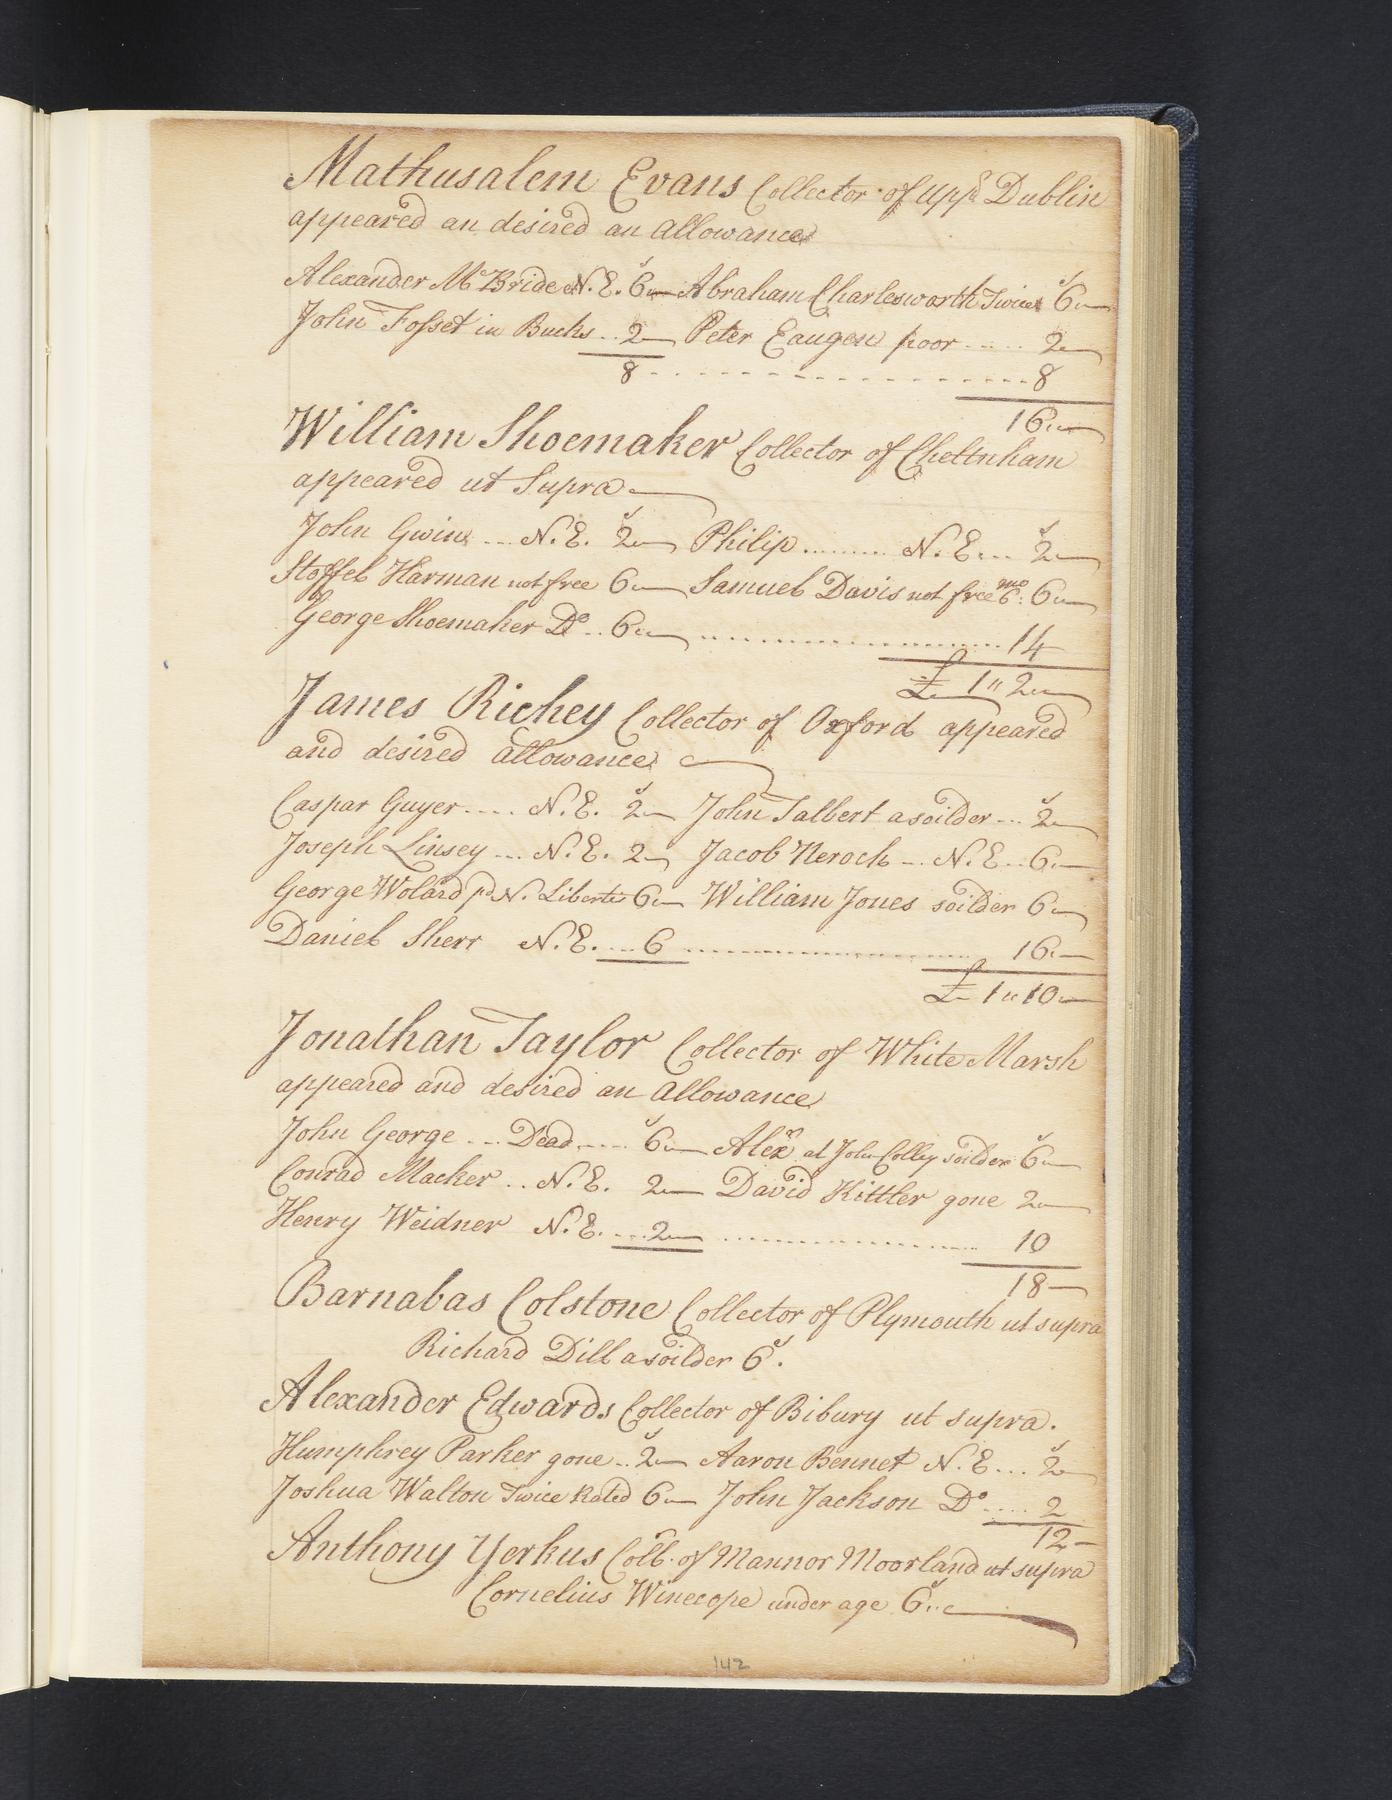 Mathusalem Evans Collector of Uppr Dublin
appeared an desired an allowance
Alexander McBride N.E. 6 Abraham Charlesworth Twice 6
John Fosset in Bucks .. 2 Peter Eaugen poor ..... 2
8 ................ 8
16
William Shoemaker Collector of Cheltnham
appeared ut Supra
John Gwin ... N.E. 2 Philip ........ N.E... 2
Stoffel Harman not free 6 Samuel Davis not free 6 mo: 6
George Shoemaker Do .. 6 ................ 14
£ 1 " 2
James Richey Collector of Oxford appeared
and desired allowance
Caspar Guyer .... N.E. 2 John Talbert a soilder ... 2
Joseph Linsey ... N.E. 2 Jacob Neroch ... N.E... 6
George Wolard pd N. Liberte 6 William Jones soilder 6
Daniel Sherr N.E. ... 6 ................ 16
£ 1 " 10
Jonathan Taylor Collector of White Marsh
appeared and desired an allowance
John George ... Dead ..... 6 Alexr at John Colley soilder 6
Conrad Macker .. N.E. 2 David Kittler gone 2
Henry Weidner N.E. ... 2 ................ 10
18
Barnabas Colstone Collector of Plymouth ut supra
Richard Dill a soilder 6s.
Alexander Edwards Collector of Bibury ut supra.
Humphrey Parker gone .. 2 Aaron Bennet N.E... 2
Joshua Walton Twice Rated 6 John Jackson Do .... 2
12
Anthony Yerkus Coll. of Mannor Moorland ut supra
Cornelius Winecope under age 6
142